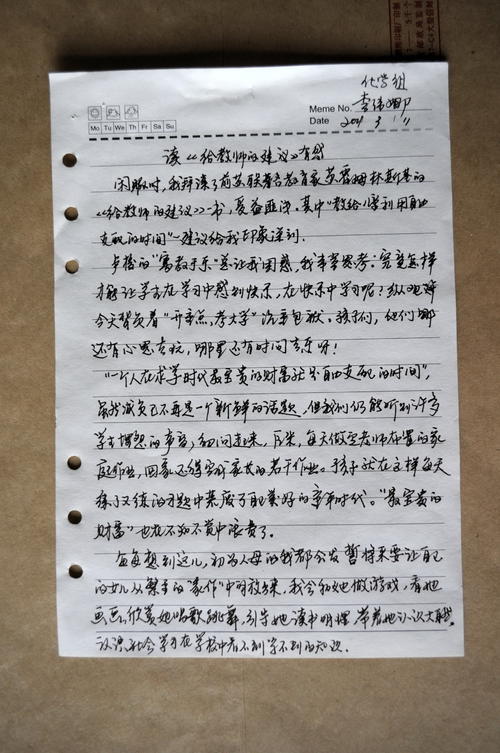 化学组
Memo No. 李伟娜
Date 2011 3 11
Mo Tu We Th Fr Sa Su
读《给教师的建议》有感
闲暇时,我拜读了前苏联著名教育家苏霍姆林斯基的
《给教师的建议》一书,受益匪浅。其中"教给学生利用自由
支配的时间"一建议给我印象深刻。
卢梭的"寓教于乐"总让我困惑,我常常思考:究竟怎样
才能让学生在学习中感到快乐,在快乐中学习呢?纵观
今天背负着"升重点,考大学"沉重包袱。孩子们,他们哪
还有心思去玩,哪里还有时间去乐呀!
"一个人在求学时代最宝贵的财富就是自由支配的时间",
虽然减负已不再是一个新鲜的话题,但我们仍能听到许多
学生埋怨的声音,细问起来,原来,每天做完老师布置的家
庭作业,回家还得完成家长的若干作业。孩子就在这样每天
练了又练的习题中荒废了自己美好的童年时代。"最宝贵的
财富"也在不知不觉中浪费了。
每每想到这儿,初为人母的我都会发誓将来要让自己
的女儿从繁重的"家作"中解放出来,我会和她做游戏,看她
画画,欣赏她唱歌跳舞,引导她读书明理,带着她认识大自然,
认识社会学习在学校中看不到学不到的知识.